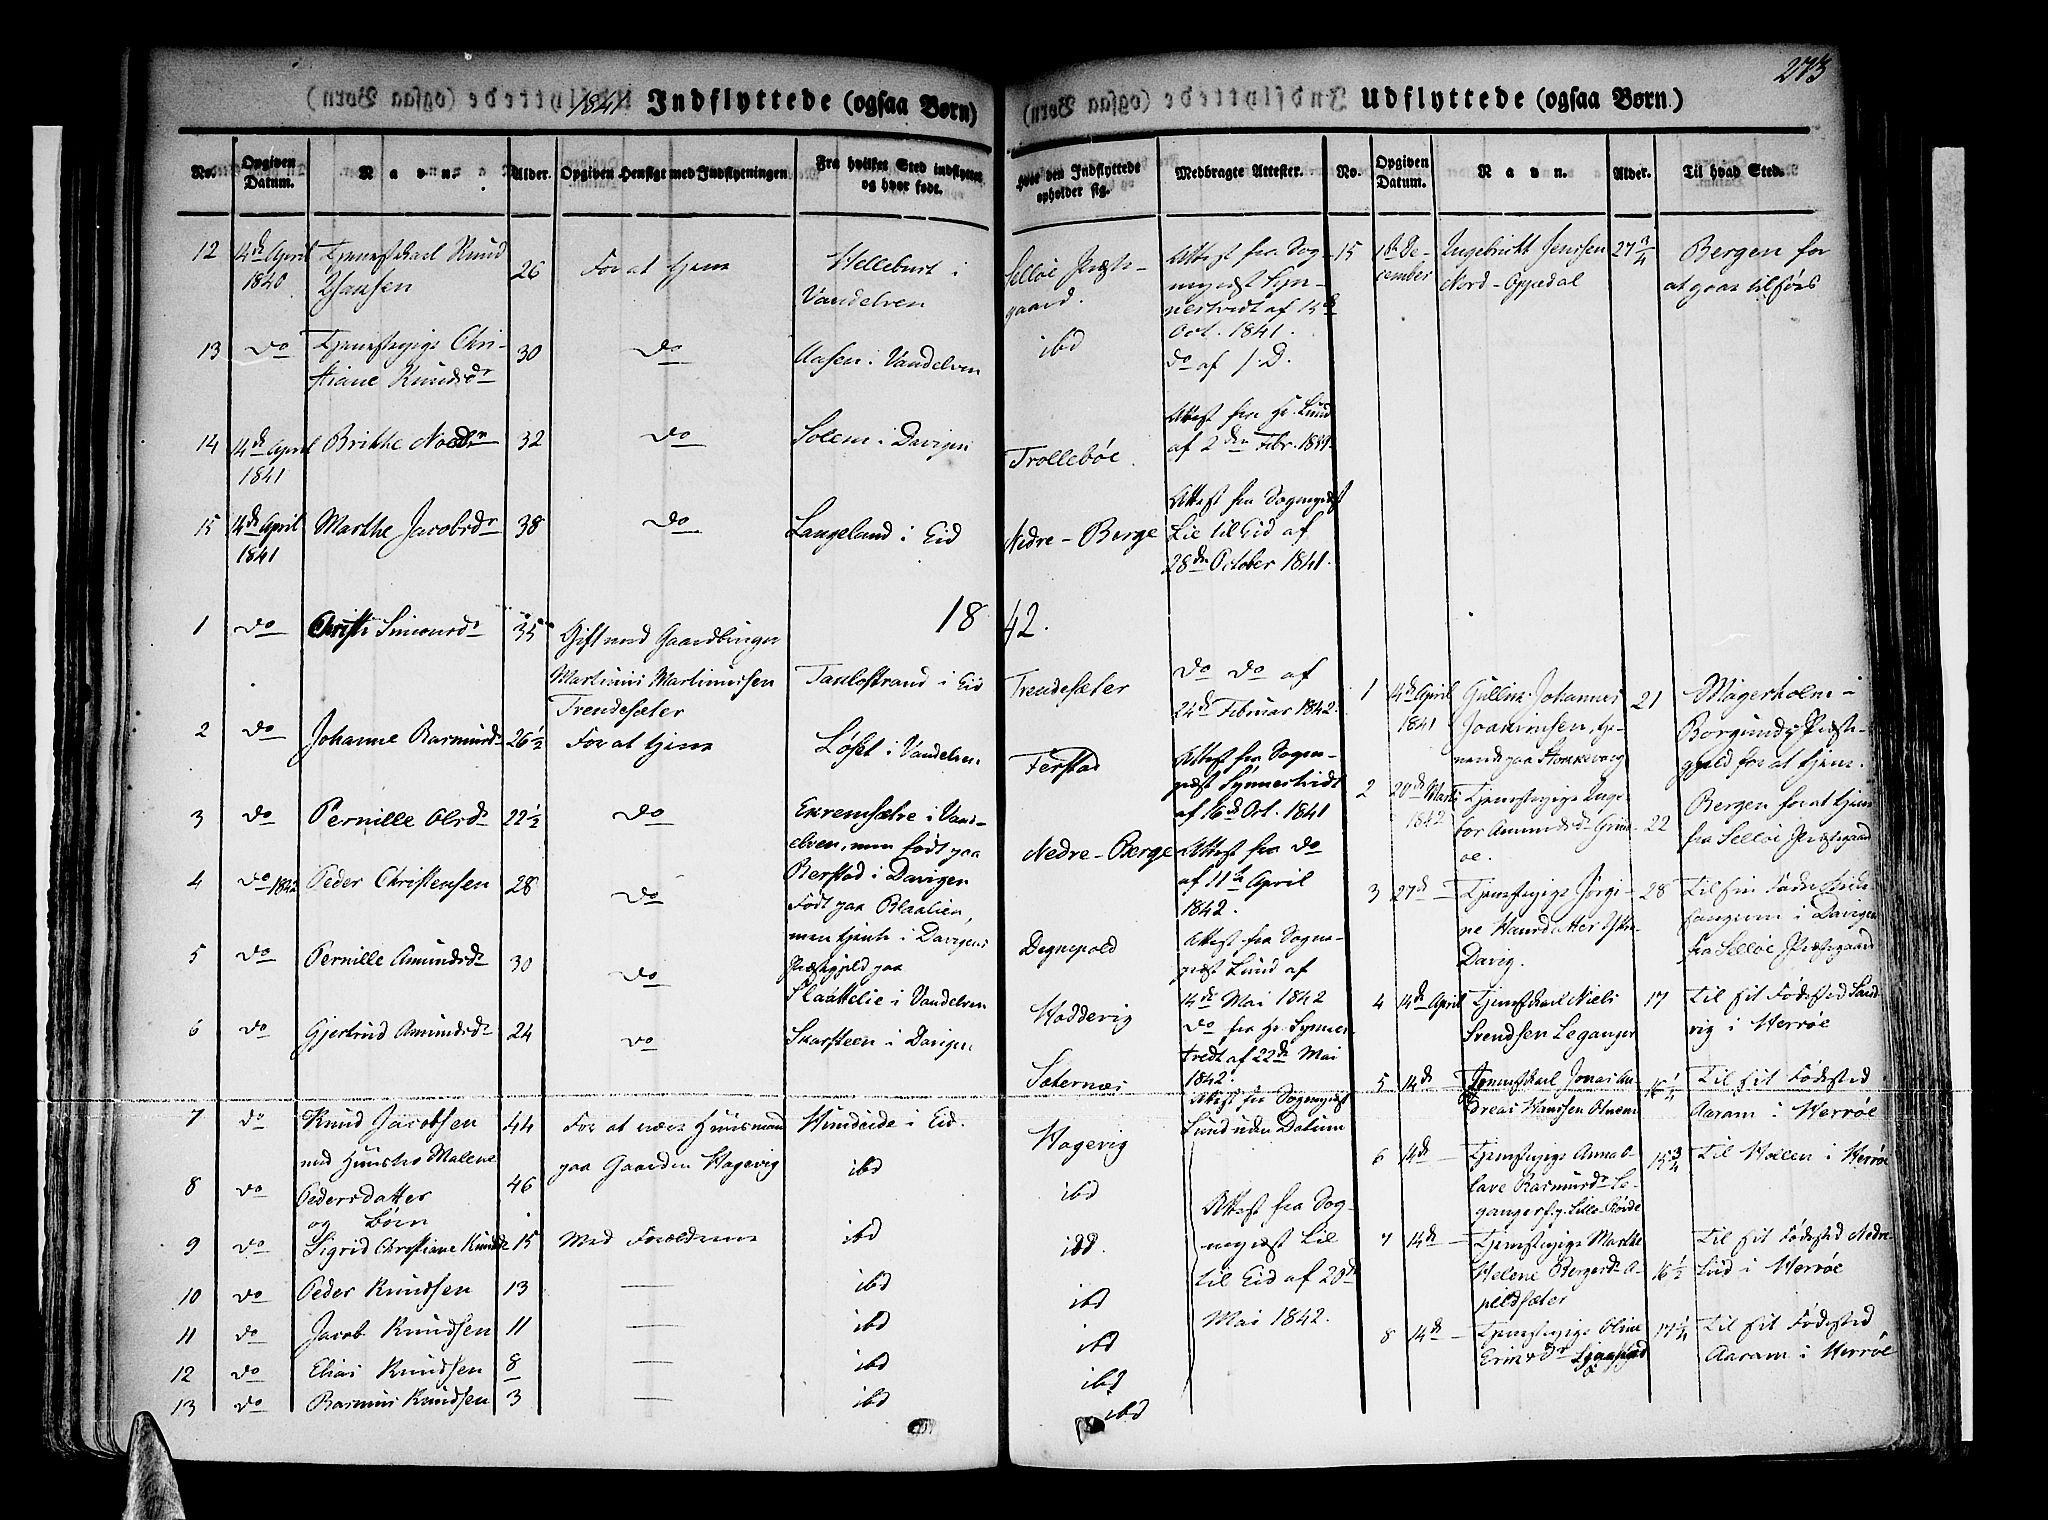 273
1841 Indflyttede (ogsaa Børn)
Udflyttede (ogsaa Børn)
No. Opgiven Datum. Navn. Alder. Opgiven Hensigt med Indflytningen Fra hvilket Sted indflyttet og hvor født.
Hvor den Indflyttede opholder sig. Medbragte Attester. No. Opgiven Datum. Navn. Alder. Til hvad Sted.
12 14de April 1840 Tjenestkarl Knud Hansen 26 For at tjene Helleburt i Vandelven
Selløe Præstegaard. Attest fra Sogneprest Synnestvedt af 15de Oct. 1841.
13 do Tjenestepige Christiane Knudsdr 30 do Aasen i Vandelven
ibd do af s. D.
14 14de April 1841 Brithe Noedr 32 do Solem i Davigen
Trollebøe. Attest fra Hr. Lund af 2den Febr. 1839.
15 14de April 1841 Marthe Jacobsdr 38 do Langeland i Eid
Nedre-Berge Attest fra Sogneprest Lie til Eid af 28de October 1841.
1842.
1 do Christi Simonsdr 35 Gift med Gaardbruger Martinus Martinussen Trendesæter Taulostrand i Eid
Trendesæter do do af 24de Februar 1842.
2 do Johanne Rasmusdr 26½ For at tjene Løset i Vandelven
Ferstad Attest fra Sogneprest Synnestvedt af 16de Oct. 1841
3 do Pernille Olsdr 22½ do Exremsætre i Vandelven, men født paa Berstad i Davigen
Nedre-Berge Attest fra do af 11te April 1842.
4 do 1842 Peder Christensen 28 do Født paa Blaalien, men tjente i Davigens Præstegjeld paa
Degnepold Attest fra Sogneprest Lund af 14de Mai 1842
5 do Pernille Amundsdr 30 do Slaattelie i Vandelven
Hoddevig do fra Hr. Synnestvedt af 22de Mai 1842.
6 do Gjertrud Amundsdr 24 do Skarsteen i Davigen
Sæternæs Attest fra Sogneprest Lund uden Datum
7 do Knud Jacobsen 44 For at være Huusmand paa Gaarden Hagevig Hundeide i Eid.
Hagevig
8 do med Huustro Malene Pedersdatter 46 ibd
ibd
og Børn
9 do Sigrid Christiane Knudsdr 15 Med Forældrene ibd
ibd.
10 do Peder Knudsen 13 — ibd
ibd
11 do Jacob Knudsen 11 — ibd
ibd
12 do Elias Knudsen 8 — ibd
ibd
13 do Rasmus Knudsen 3 — ibd
ibd
Attest fra Sogneprest Lie til Eid af 20de Mai 1842.
15 1ste December Ingebrikt Jenssen Nord-Oppedal 27¾ Bergen for at gaae tilsøes
1 14de April 1841 Johannes Joakimsen, tjenende paa 21 Magerholm i Borgunds Præstegjeld for at tjene.
2 20de Marts 1842 Tjenestepige Ingebor Amundsdr 22 Bergen for at tjene fra Selløe Præstegaard
3 27de — Tjenestepige Jørgine Hansdatter Davig. 28 Til sin Fader i Davigen fra Selløe Præstegaard
4 14de April Tjenestkarl Niels Svendsen Leganger 17 Til sit Fødested Sandvig i Herrøe
5 14de — Tjenestkarl Jonas Andreas Hansen 16¼ Til sit Fødested Aaram i Herrøe
6 14de — Tjenestepige Anna Olave Rasmusdr Leganger 15¾ Til i Herrøe
7 14de — Tjenestepige Marthe Helene Bergersdr Apildsæter 16½ Til sit Fødested Nedre i Herrøe
8 14de — Tjenestepige Oline 17¼ Til sit Fødested Aaram i Herrøe